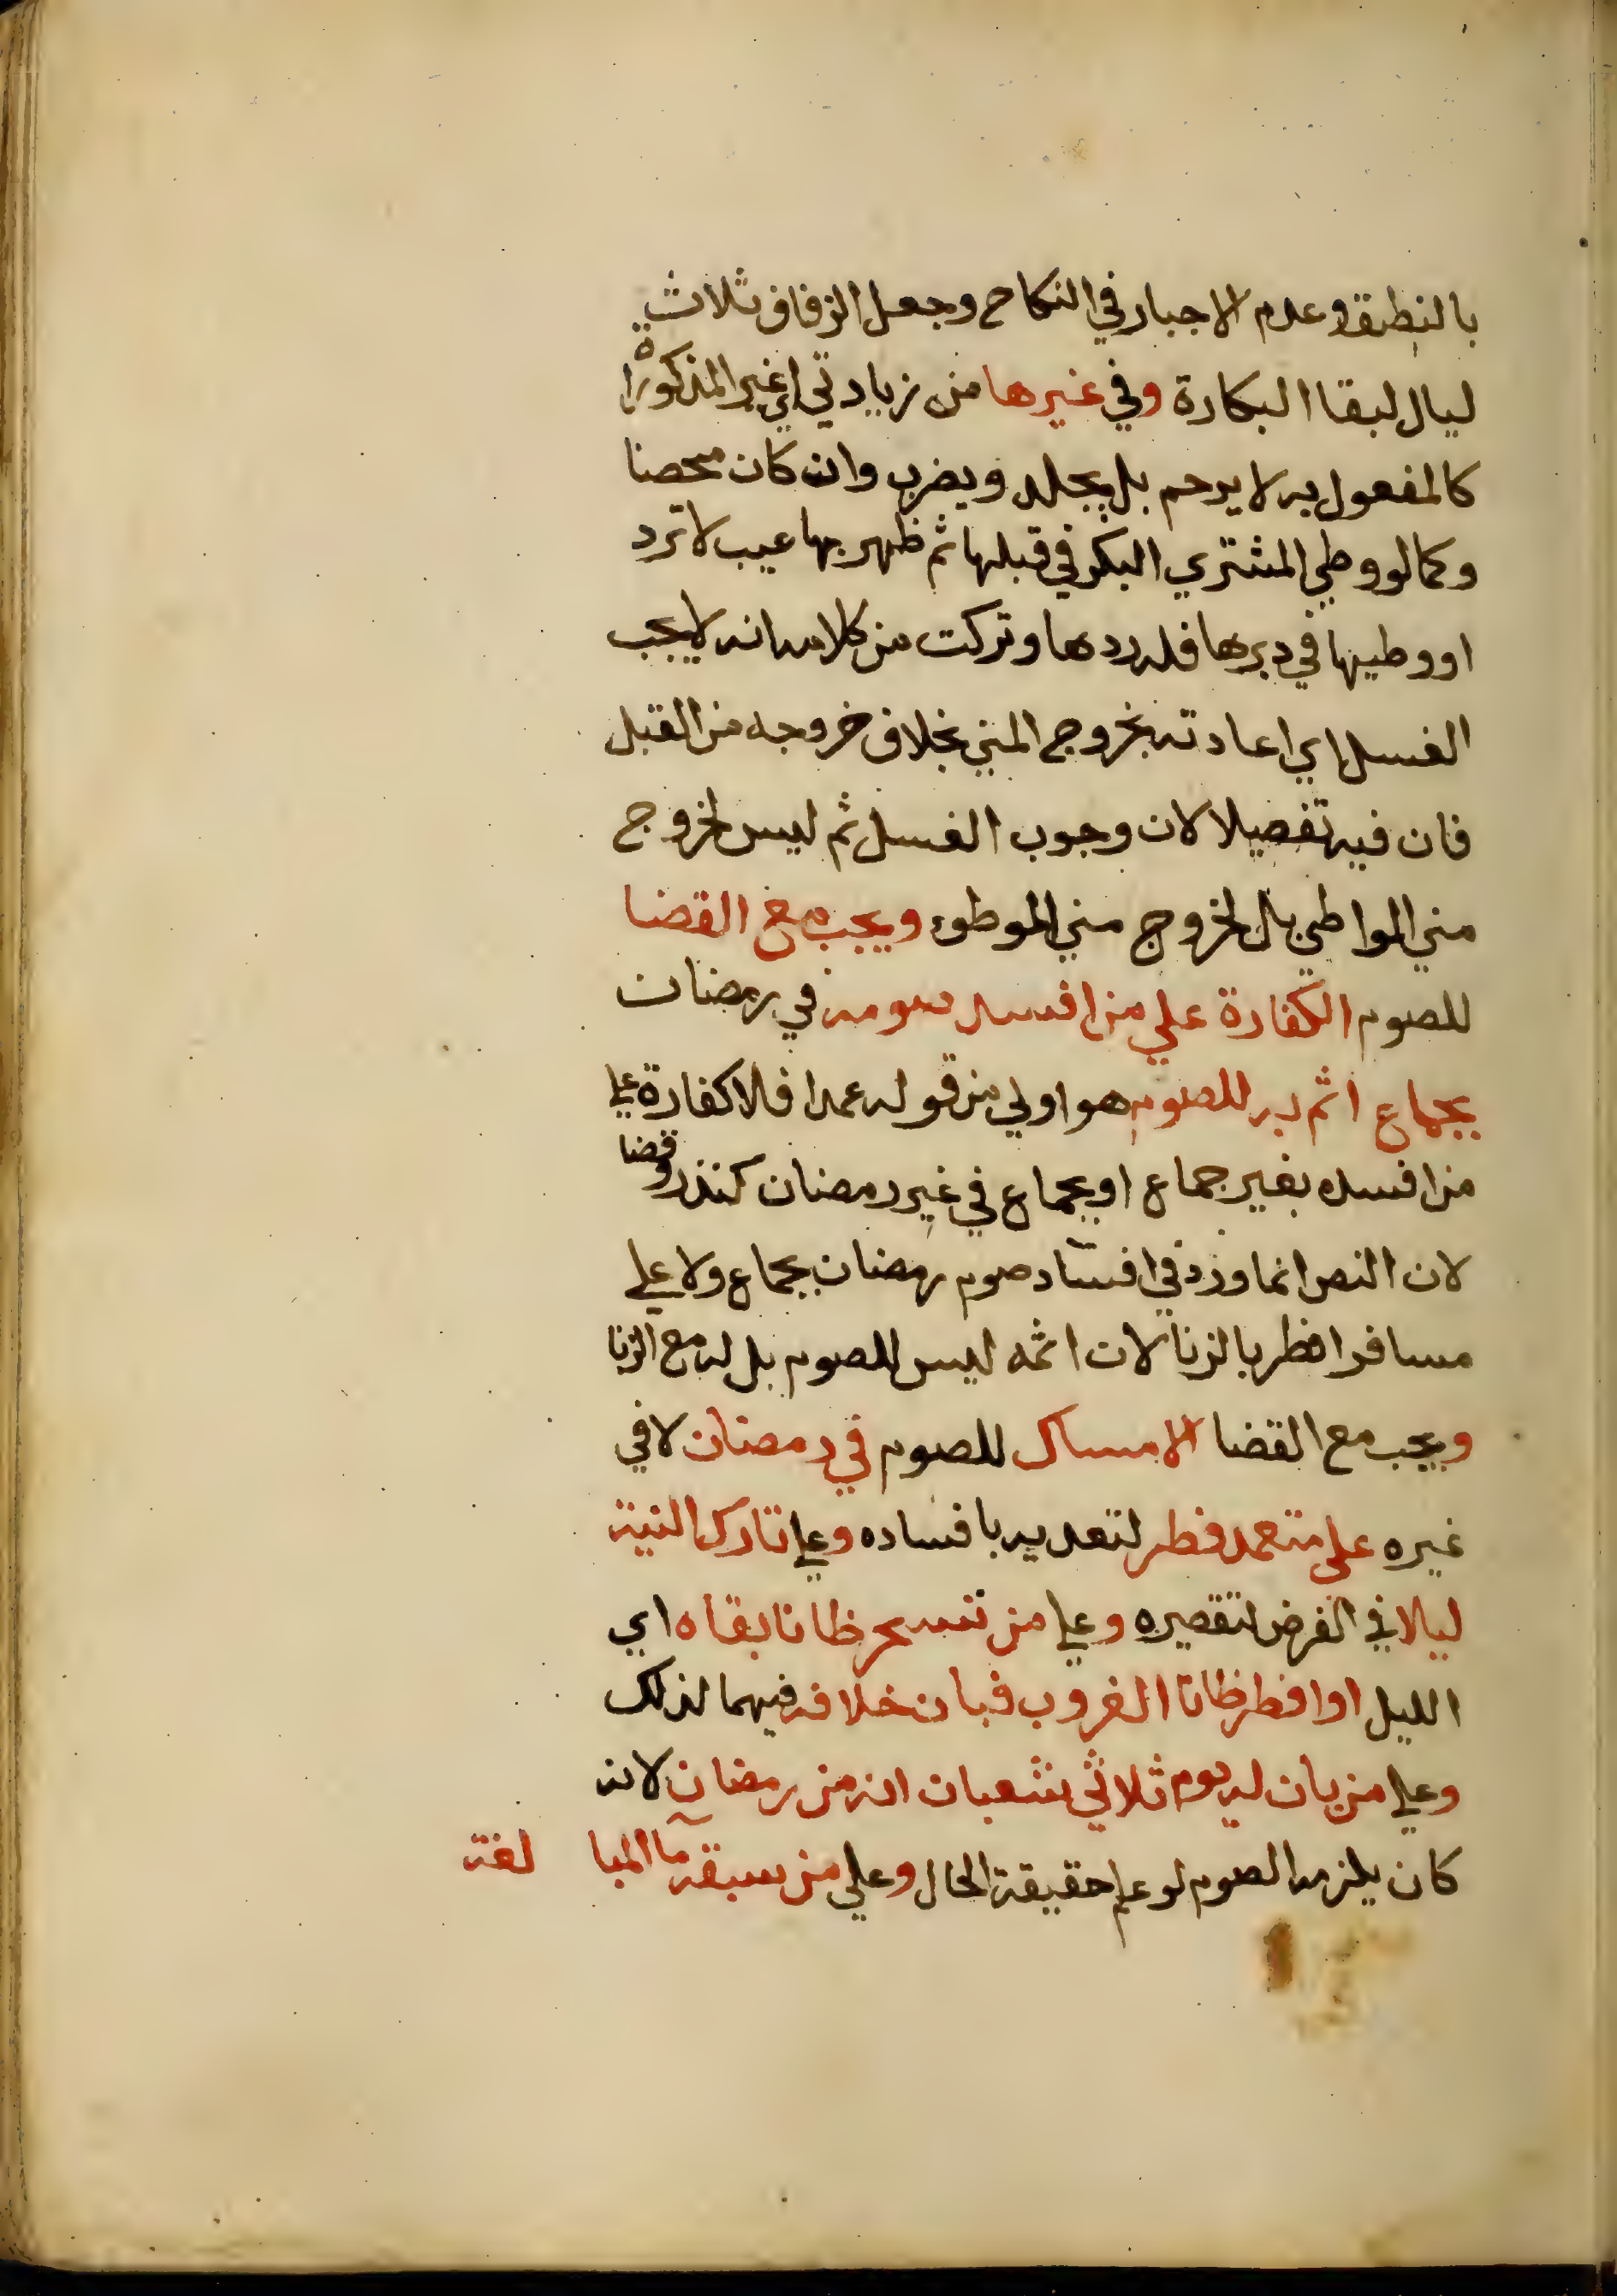 بالنطق وعدم الاجبار في النكاح وجعل الزفاف ثلاث
ليال لبقا البكارة وفي غيرها من زيادتي اي غير المذكورة
كالمفعول به لا يرجم بل يجلد ويضرب وان كان محصنا
وكما لو وطي المشتري البكر في قبلها ثم ظهر بها عيب لا ترد
او وطيها في دبرها فله ردها وتركت من كلامه انه لا يجب
الغسل اي اعادته بخروج المني بخلاف خروجه من القبل
فان فيه تفصيلا لان وجوب الغسل ثم ليس لخروج
مني الواطي بل لخروج مني الموطوء ويجب مع القضا
للصوم الكفارة علي من افسد صومه في رمضان
بجماع اثم به للصوم هو اولي من قوله عمدا فلا كفارة علي
من افسده بغير جماع او بجماع في غير رمضان كنذر وقضا
لان النص انما ورد في افساد صوم رمضان بجماع ولا علي
مسافر افطر بالزنا لان اثمه ليس للصوم بل له مع الزنا
ويجب مع القضا الامساك للصوم في رمضان لا في
غيره علي متعمد فطر لتعديه بافساده وعلي تارك النية
ليلا في الفرض لتقصيره وعلي من تسحر ظانا بقاه اي
الليل او افطر ظانا الغروب فبان خلافه فيهما لذلك
وعلي من بان له يوم ثلاثي شعبان انه من رمضان لانه
كان يلزمه الصوم لو علم حقيقة الحال وعلي من سبقه ما المبا لغة